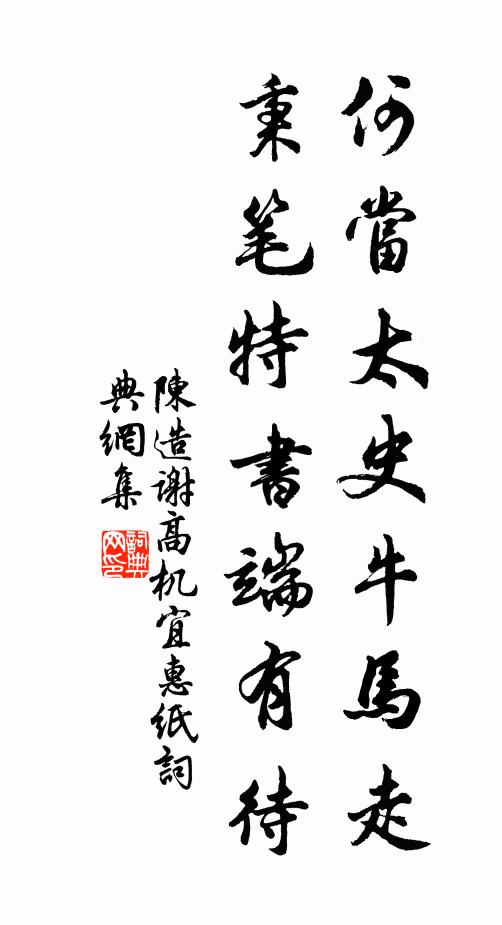 何當太史牛馬走
秉笔特書端有待
陳造謝高机宜惠紙詞
典網集
詞典網印